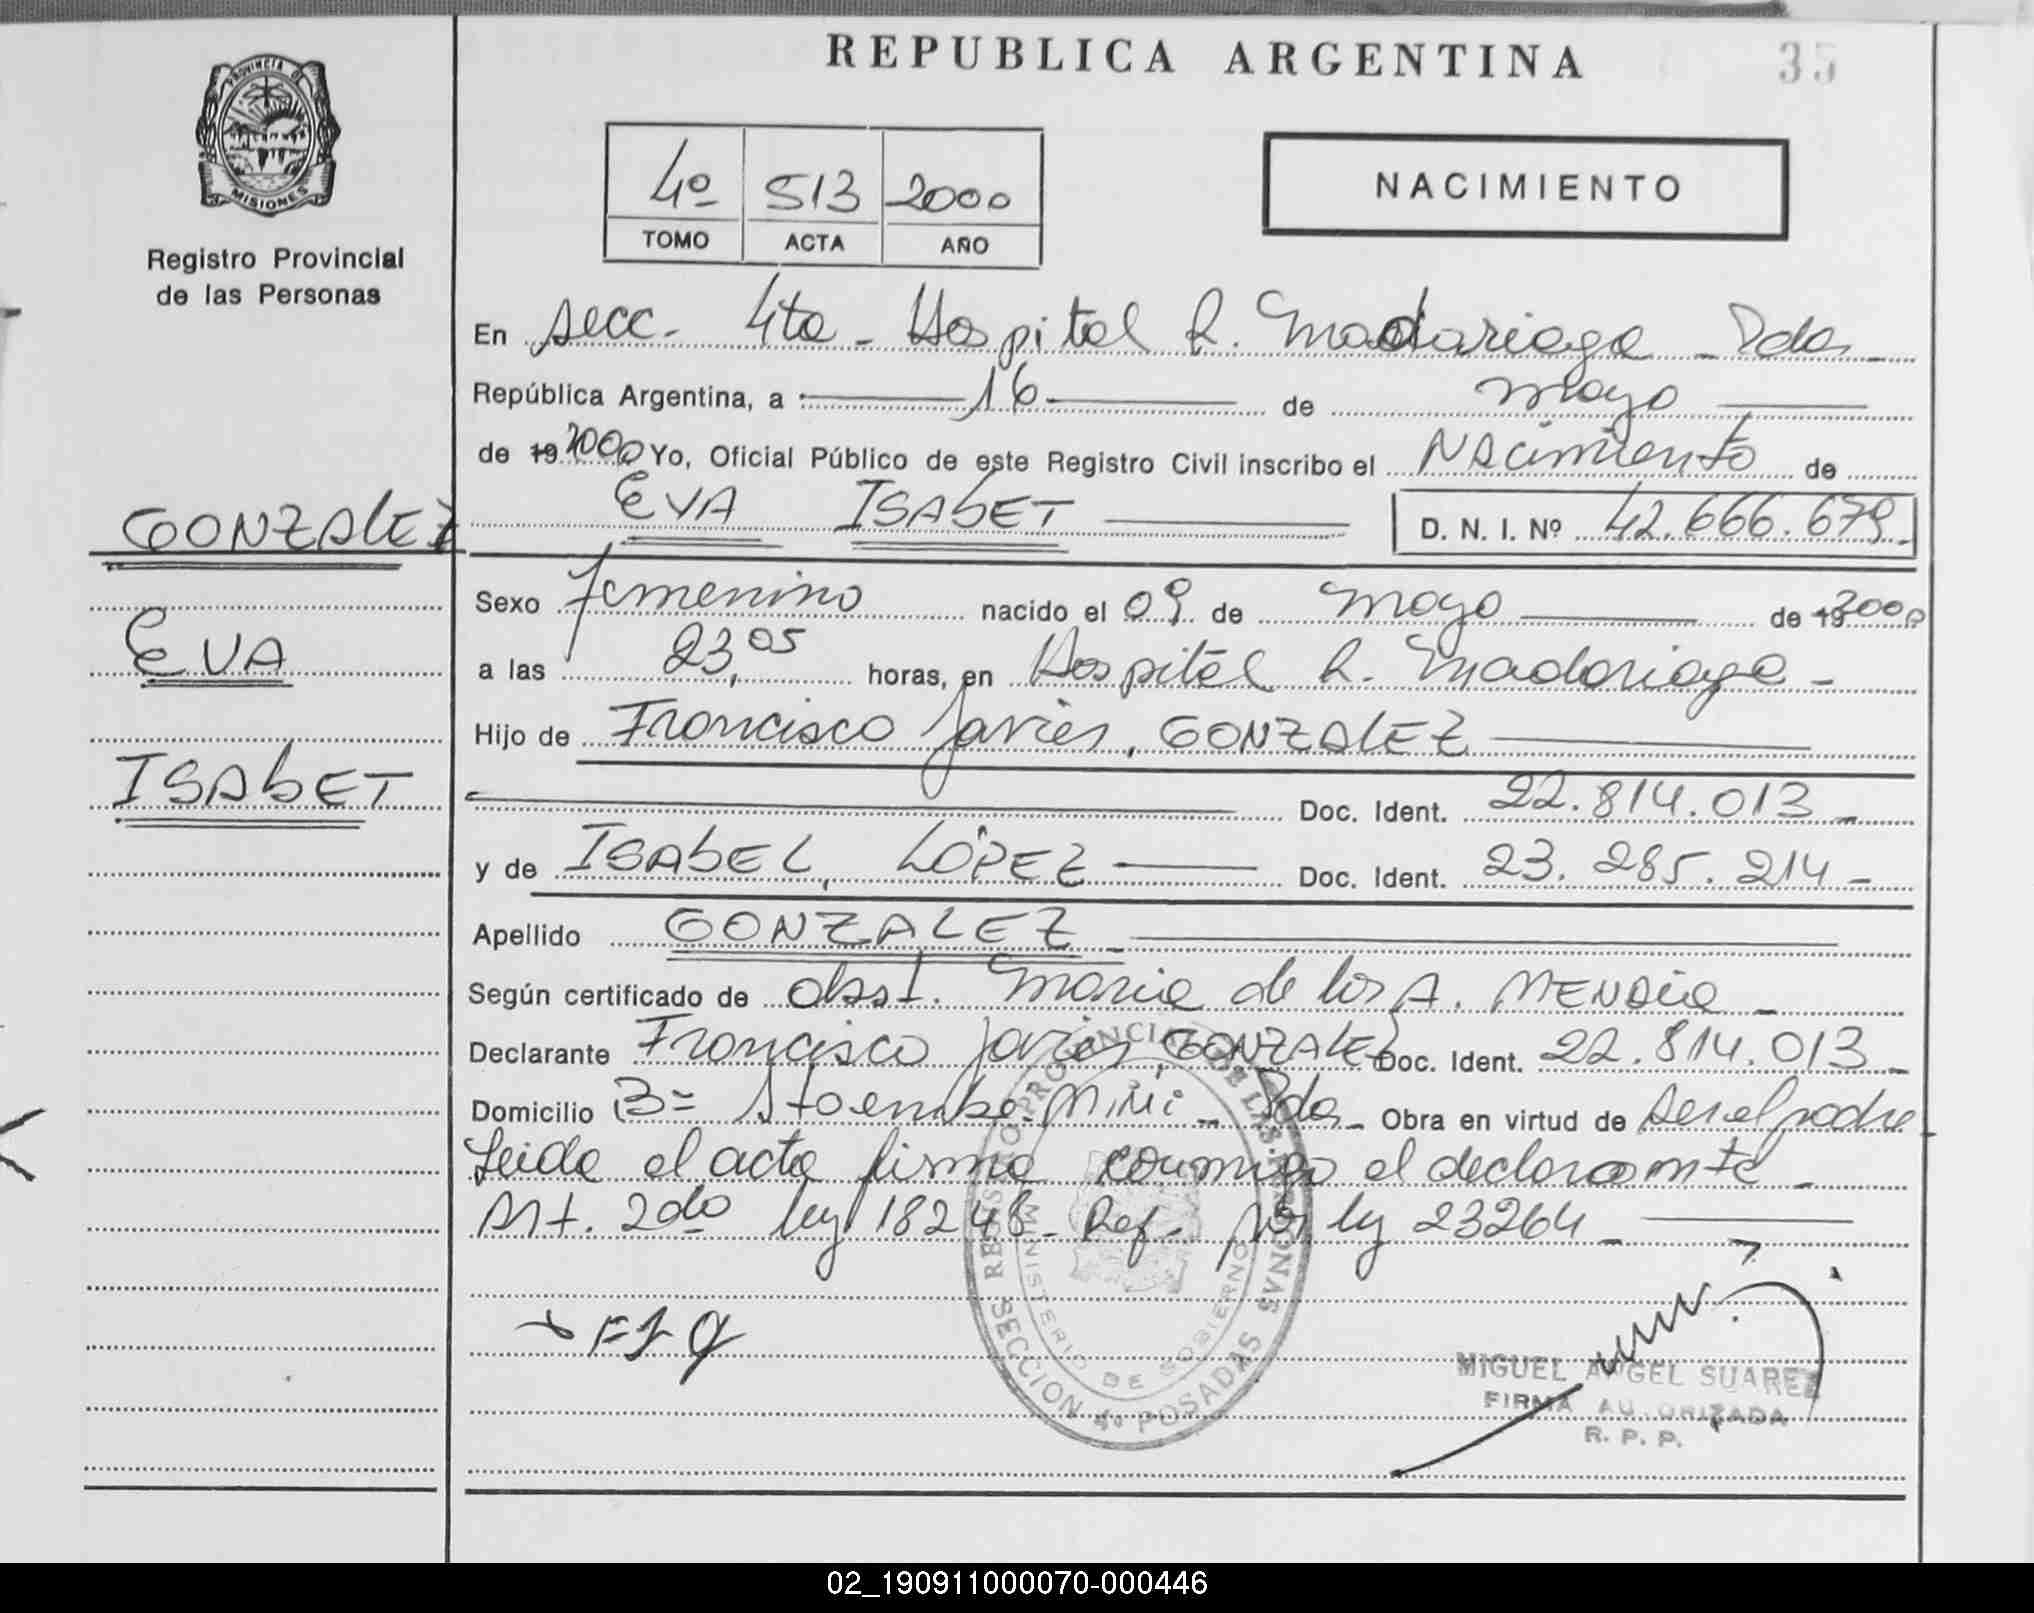 REPUBLICA ARGENTINA
35
PROVINCIA DE
MISIONES
Registro Provincial
de las Personas
4º 513 2000
TOMO ACTA AÑO
NACIMIENTO
En secc. 4ta - Hospital R. Madariaga - Pdas -
República Argentina, a 16 de mayo
de 19 2000 Yo, Oficial Público de este Registro Civil inscribo el Nacimiento de
EVA ISABET D. N. I. Nº 42.666.679
GONZALEZ
EVA
ISABET
Sexo femenino nacido el 09 de mayo de 19 2000
a las 23,05 horas, en Hospital R. Madariaga -
Hijo de Francisco Javier, GONZALEZ
Doc. Ident. 22.814.013 -
y de ISABEL, LÓPEZ Doc. Ident. 23.285.214 -
Apellido GONZALEZ -
Según certificado de obst. Maria de los A. -
Declarante Francisco Javier, GONZALEZ Doc. Ident. 22.814.013 -
Domicilio Bº Miní - Pdas - Obra en virtud de ser el padre
Leida el acta firma conmigo el declarante -
Art. 2do ley 18248 - Ref. por ley 23264 -
REGISTRO PROVINCIAL DE LAS PERSONAS
MINISTERIO DE GOBIERNO
SECCION 4º POSADAS
MIGUEL ANGEL SUAREZ
FIRMA AUTORIZADA
R. P. P.
02_190911000070-000446